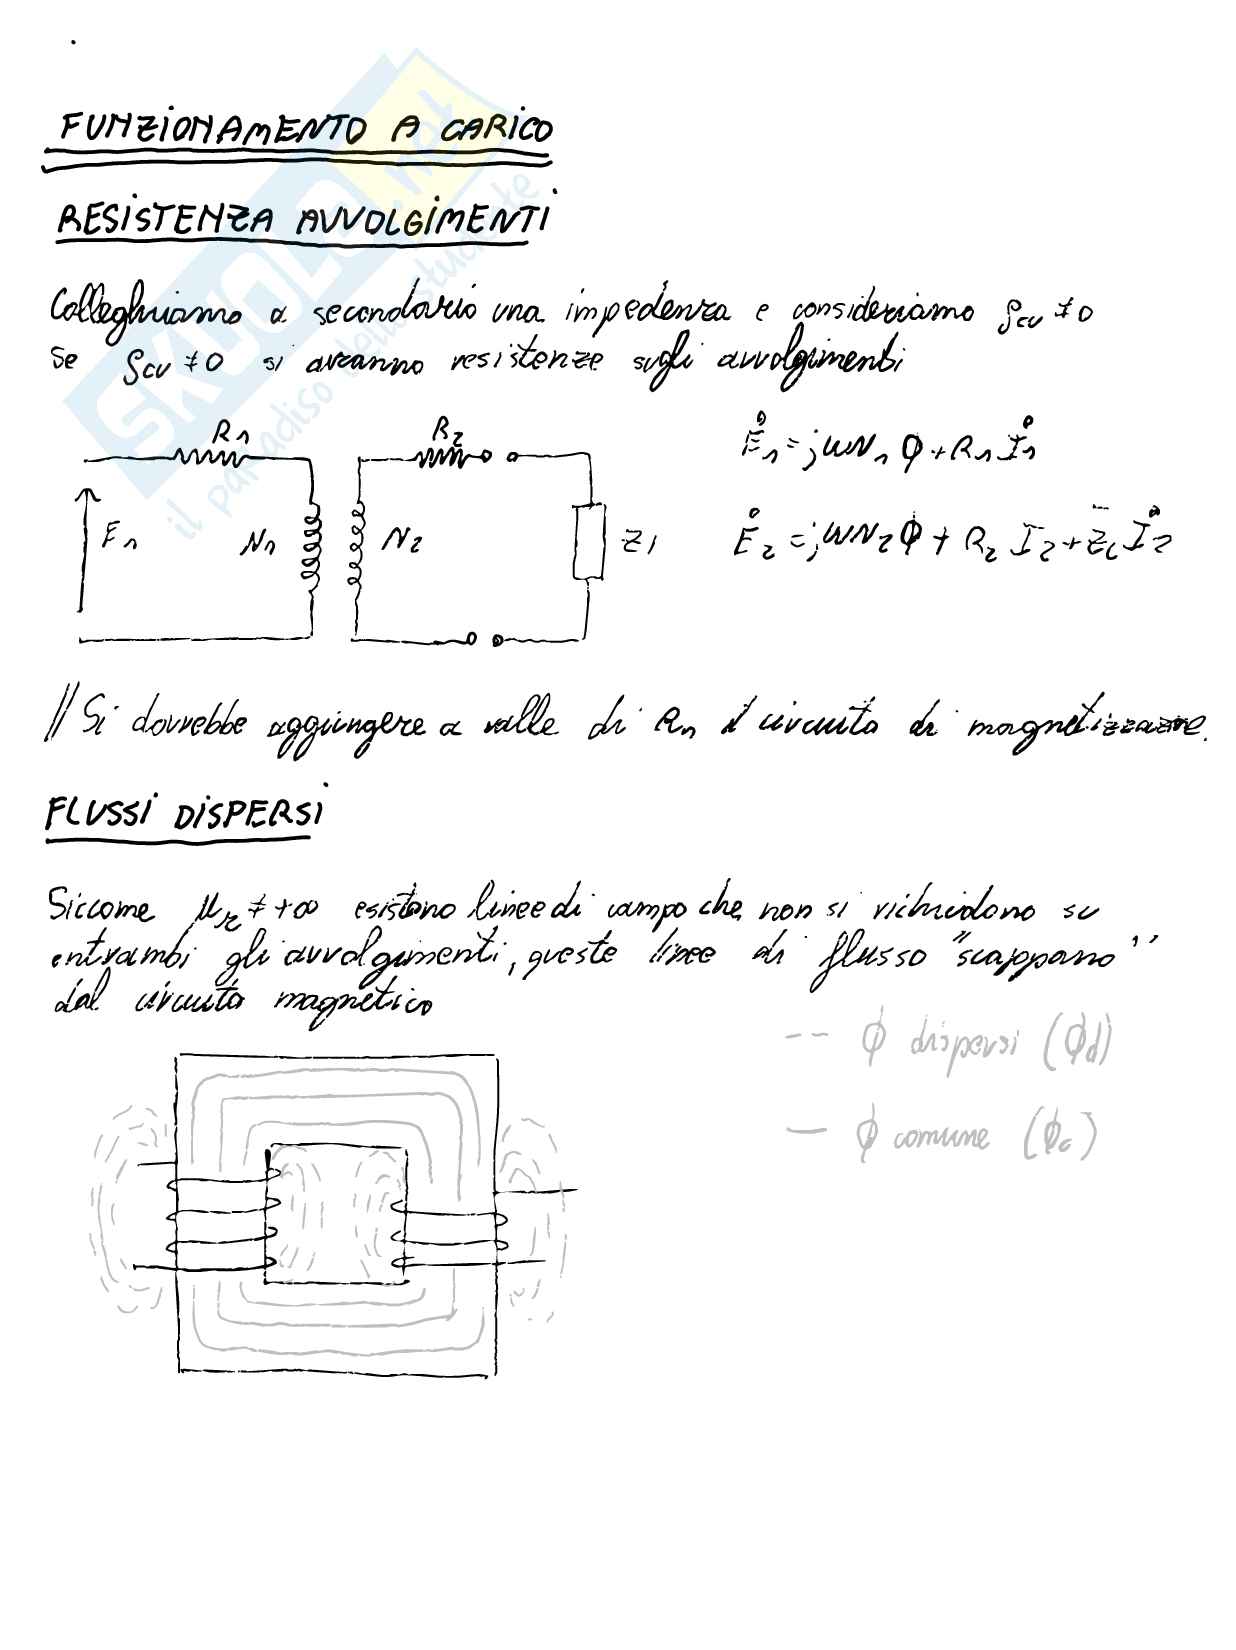 FUNZIONAMENTO A CARICO
RESISTENZA AVVOLGIMENTI
Colleghiamo a secondario una impedenza e consideriamo ρcu ≠ 0
Se ρcu ≠ 0 si avranno resistenze sugli avvolgimenti
R1
R2
E1
N1
N2
Zl
E̊1 = jωN1 ϕ + R1 I̊1
E̊2 = jωN2 ϕ + R2 I2 + Z̄c I̊2
// Si dovrebbe aggiungere a valle di R1 il circuito di magnetizzazione.
FLUSSI DISPERSI
Siccome μr ≠ +∞ esistono linee di campo che non si richiudono su
entrambi gli avvolgimenti, queste linee di flusso "scappano"
dal circuito magnetico
-- ϕ dispersi (ϕd)
— ϕ comune (ϕc)
SKUOLA.net
il paradiso dello studente